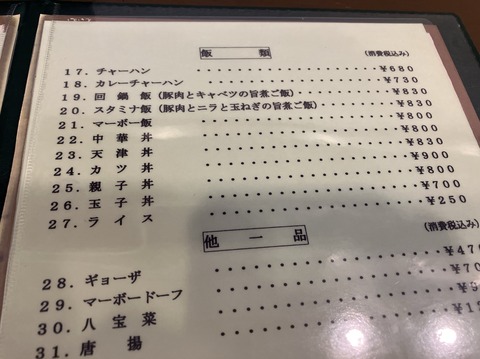 飯類
(消費税込み)
17. チャーハン ・・・・・・・・・・・・・・・・・ ¥680
18. カレーチャーハン ・・・・・・・・・・・・・・・ ¥730
19. 回鍋飯 (豚肉とキャベツの旨煮ご飯) ・・・・・・ ¥830
20. スタミナ飯 (豚肉とニラと玉ねぎの旨煮ご飯) ・・・・ ¥830
21. マーボー飯 ・・・・・・・・・・・・・・・・・ ¥800
22. 中華丼 ・・・・・・・・・・・・・・・・・ ¥800
23. 天津丼 ・・・・・・・・・・・・・・・・・ ¥830
24. カツ丼 ・・・・・・・・・・・・・・・・・ ¥900
25. 親子丼 ・・・・・・・・・・・・・・・・・ ¥800
26. 玉子丼 ・・・・・・・・・・・・・・・・・ ¥700
27. ライス ・・・・・・・・・・・・・・・・・ ¥250
他一品
(消費税込み)
28. ギョーザ ・・・・・・・・・・・・・・・・・ ¥47
29. マーボードーフ ・・・・・・・・・・・・・・・ ¥70
30. 八宝菜 ・・・・・・・・・・・・・・・・・
31. 唐揚 ・・・・・・・・・・・・・・・・・